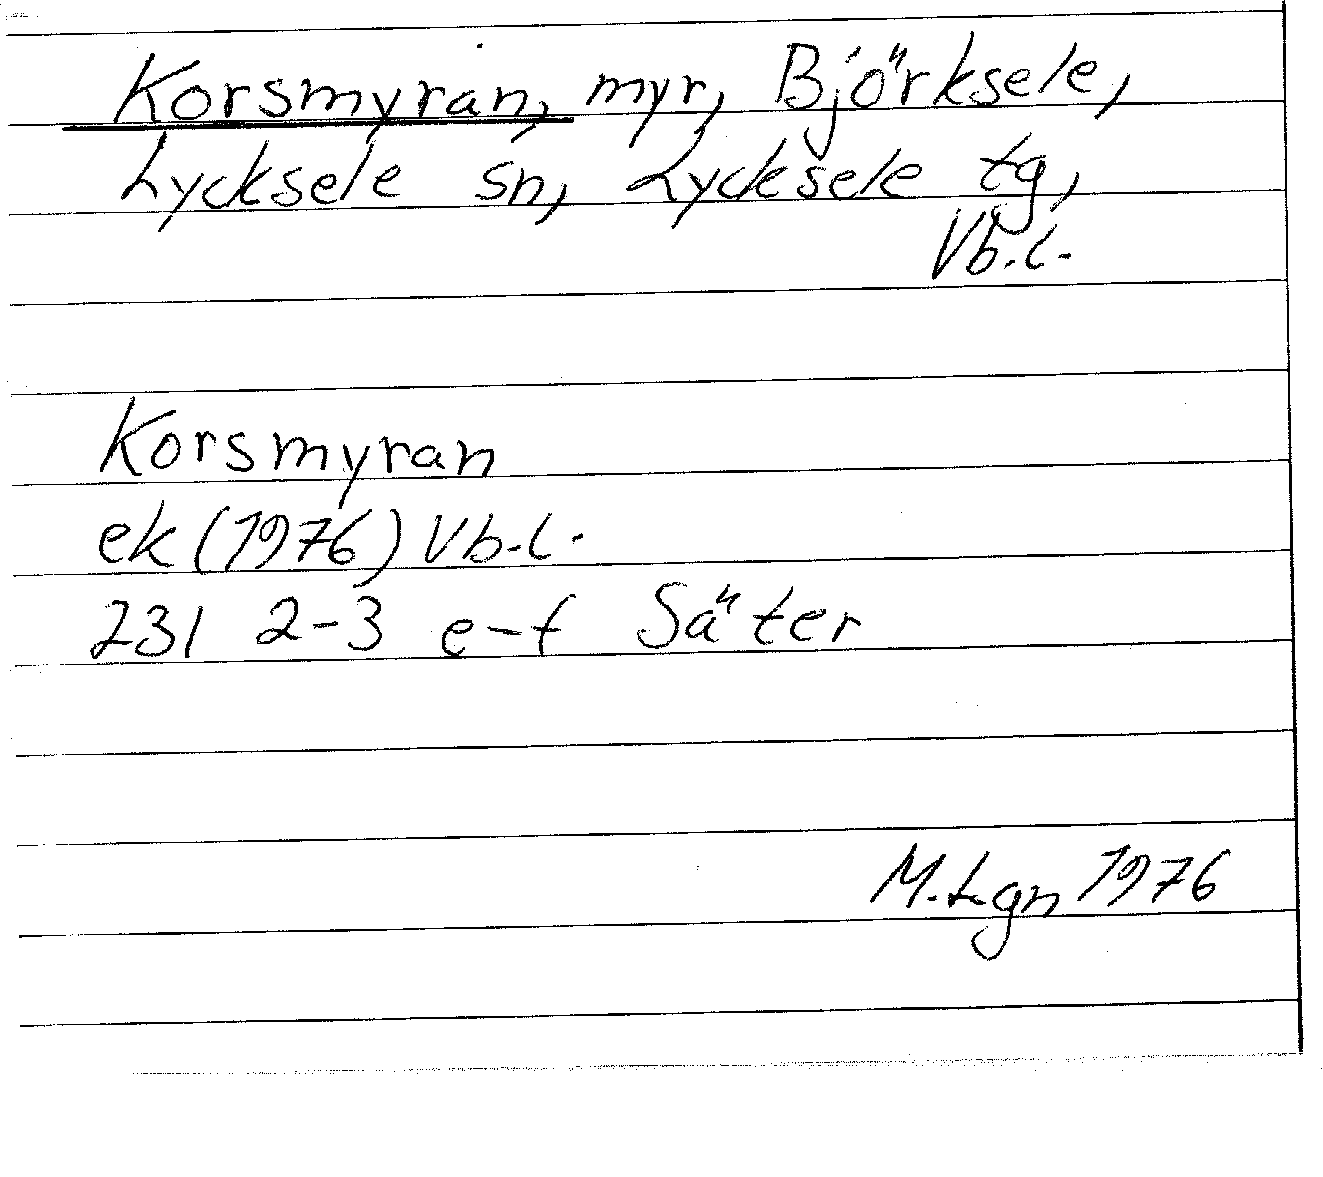 Korsmyran, myr, Björksele,
Lycksele sn, Lycksele tg,
Vb.l.
Korsmyran
ek (1976) Vb.l.
231 2-3 e-f Säter
M.Lgn 1976